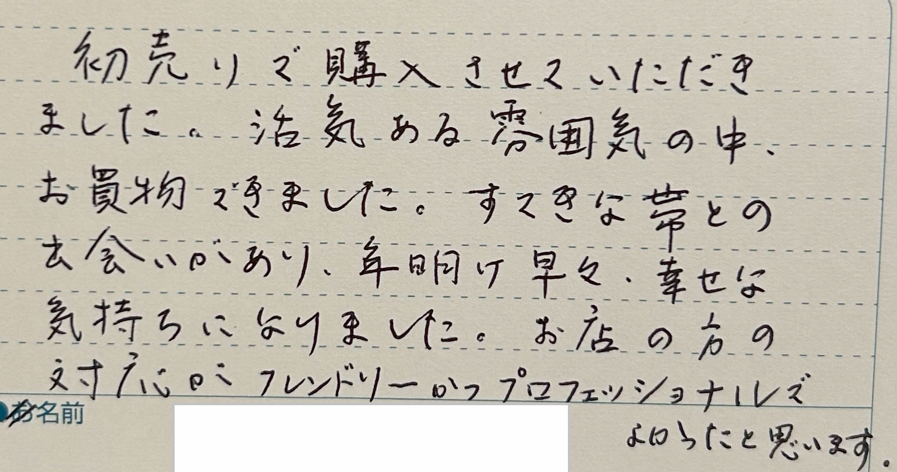 初売りで購入させていただき
ました。活気ある雰囲気の中、
お買物できました。すてきな帯との
出会いがあり、年明け早々、幸せな
気持ちになりました。お店の方の
対応がフレンドリーかつプロフェッショナルで
よかったと思います。
お名前